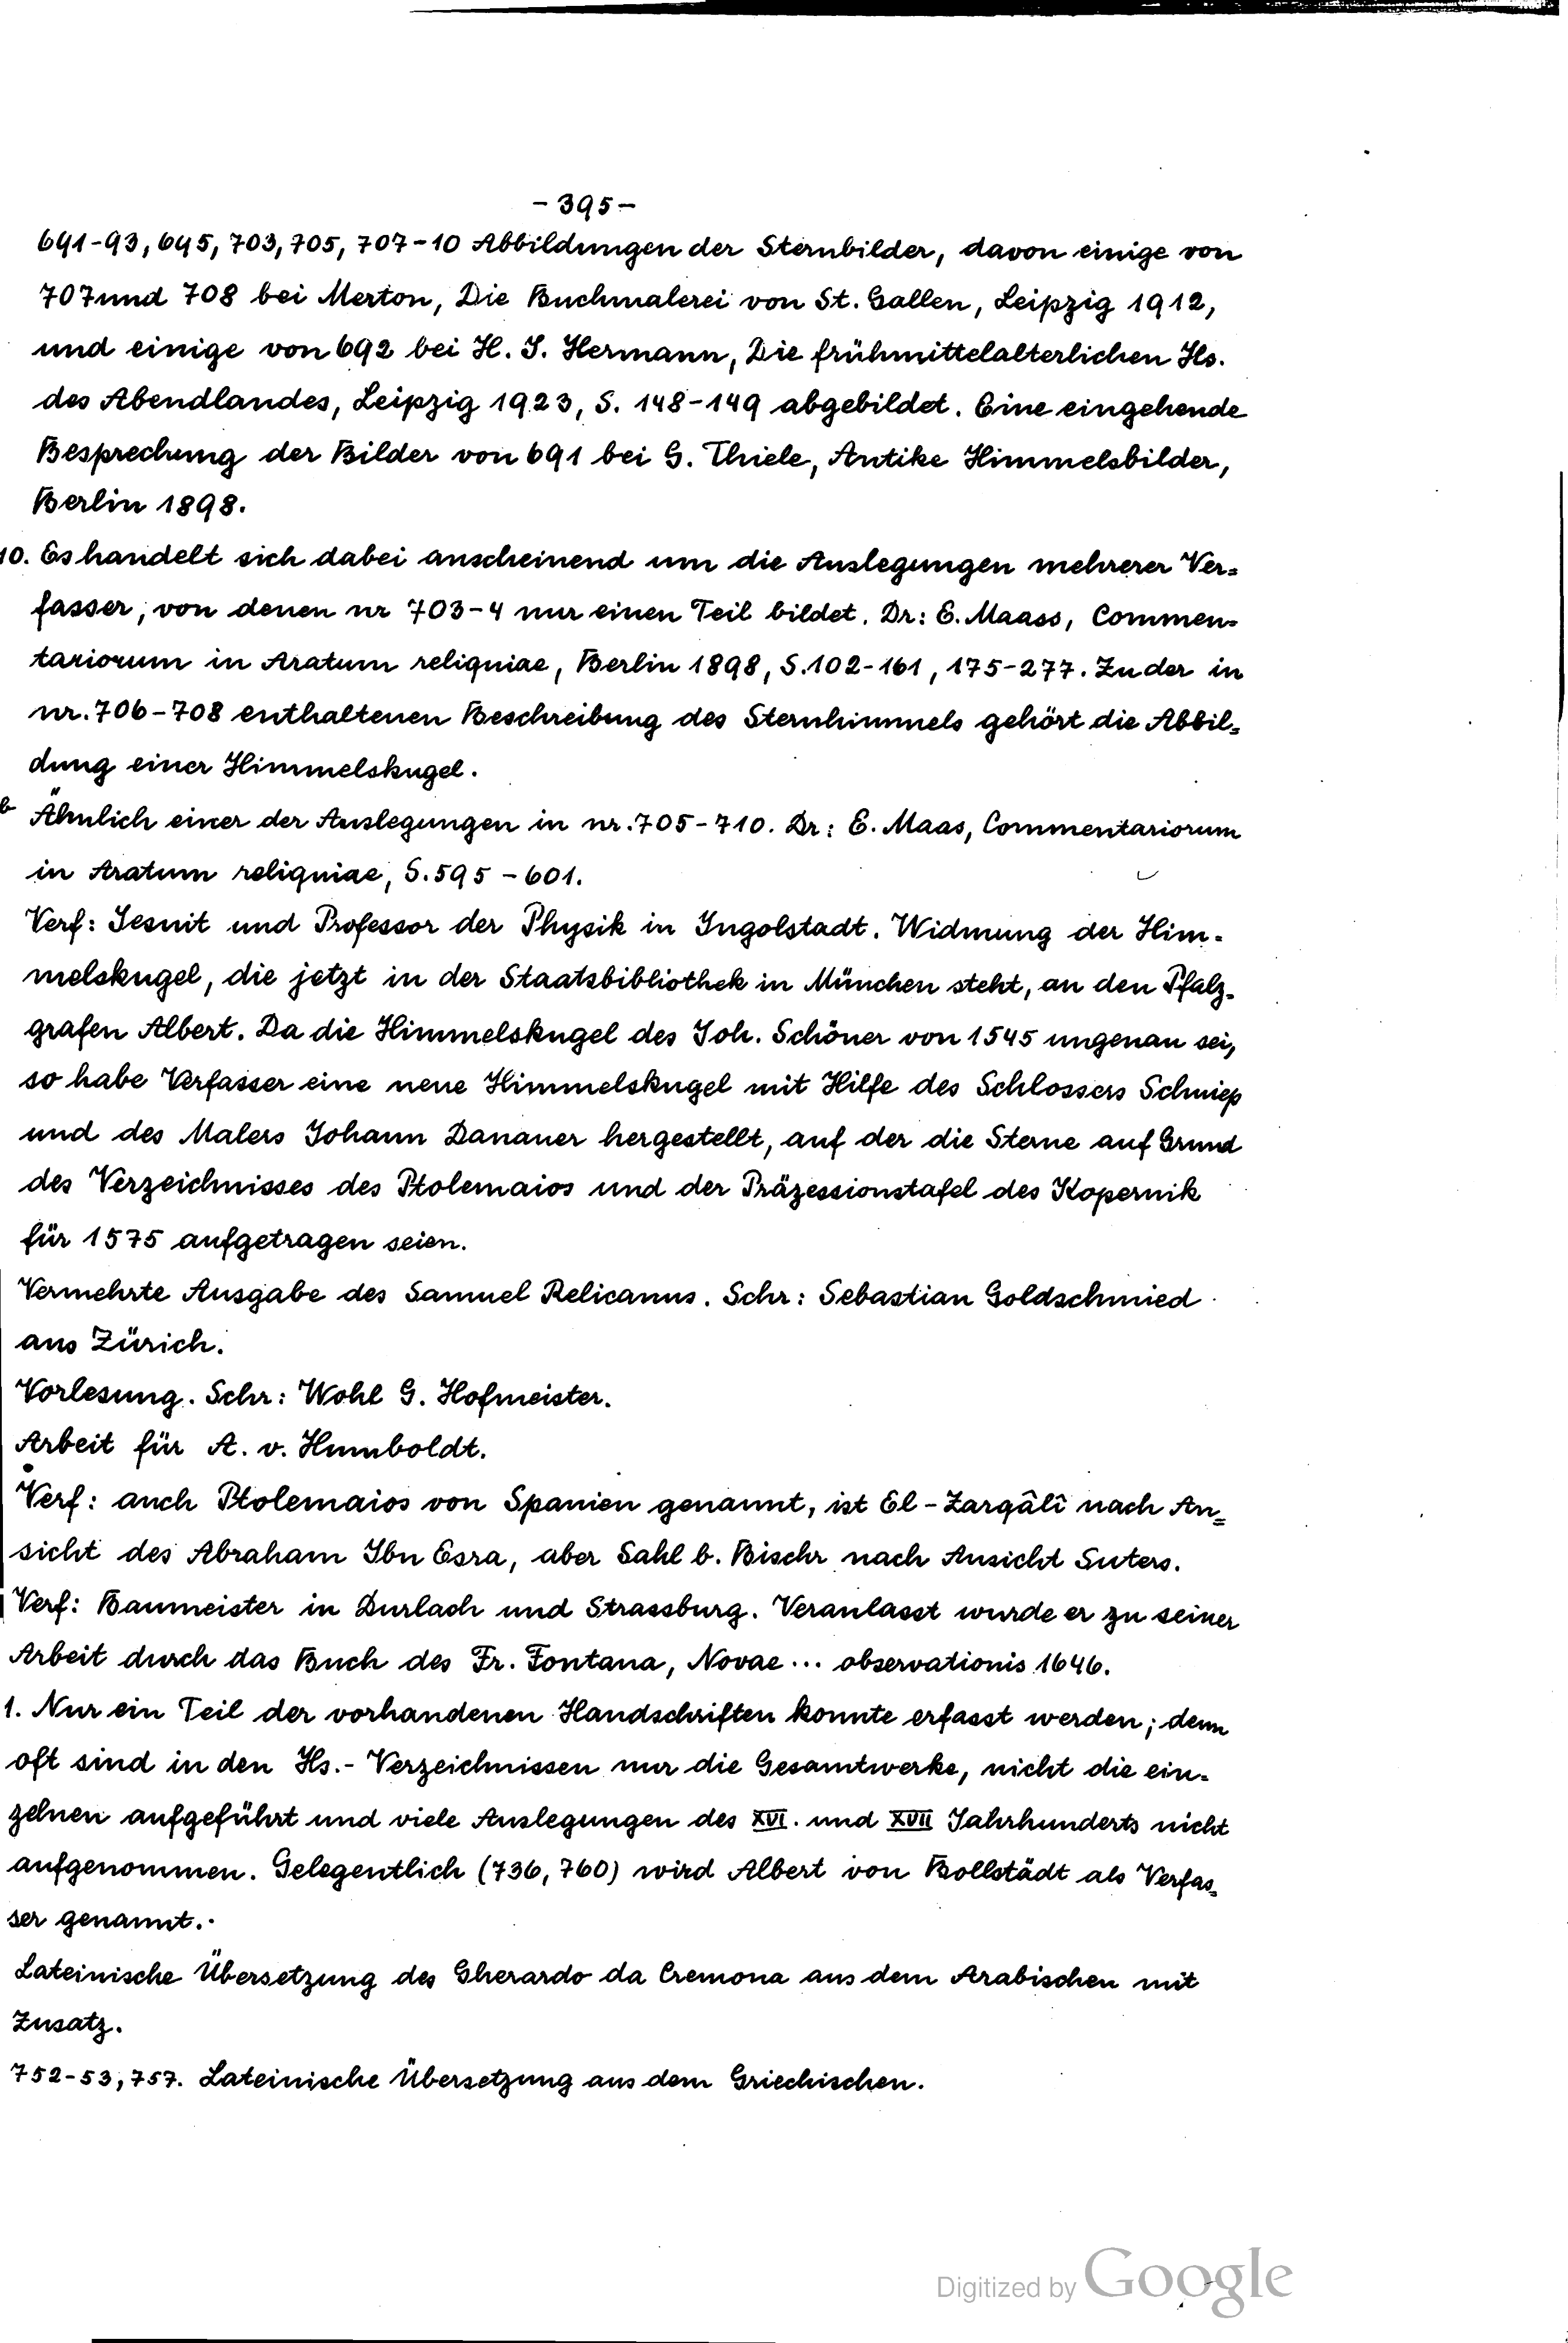 - 395 -
691-93, 695, 703, 705, 707-10 Abbildungen der Sternbilder, davon einige von
707 und 708 bei Merton, Die Buchmalerei von St. Gallen, Leipzig 1912,
und einige von 692 bei H. J. Hermann, Die frühmittelalterlichen Hs.
des Abendlandes, Leipzig 1923, S. 148-149 abgebildet. Eine eingehende
Besprechung der Bilder von 691 bei G. Thiele, Antike Himmelsbilder,
Berlin 1898.
10. Es handelt sich dabei anscheinend um die Auslegungen mehrerer Ver=
fasser, von denen nr 703-4 nur einen Teil bildet. Dr: E. Maass, Commen=
tariorum in Aratum reliquiae, Berlin 1898, S.102-161, 175-277. Zu der in
nr. 706-708 enthaltenen Beschreibung des Sternhimmels gehört die Abbil=
dung einer Himmelskugel.
b Ähnlich einer der Auslegungen in nr. 705-710. Dr: E. Maas, Commentariorum
in Aratum reliquiae, S. 595-601.
Verf: Jesuit und Professor der Physik in Ingolstadt. Widmung der Him=
melskugel, die jetzt in der Staatsbibliothek in München steht, an den Pfalz=
grafen Albert. Da die Himmelskugel des Joh. Schöner von 1545 ungenau sei,
so habe Verfasser eine neue Himmelskugel mit Hilfe des Schlossers Schniep
und des Malers Johann Danauer hergestellt, auf der die Sterne auf Grund
des Verzeichnisses des Ptolemaios und der Präzessionstafel des Kopernik
für 1575 aufgetragen seien.
Vermehrte Ausgabe des Samuel Relicanus. Schr: Sebastian Goldschmied
aus Zürich.
Vorlesung. Schr: Wohl G. Hofmeister.
Arbeit für A. v. Humboldt.
Verf: auch Ptolemaios von Spanien genannt, ist El-Zarqâlî nach An=
sicht des Abraham Ibn Esra, aber Sahl b. Bischr nach Ansicht Suters.
Verf: Baumeister in Durlach und Strassburg. Veranlasst wurde er zu seiner
Arbeit durch das Buch des Fr. Fontana, Novae ... observationis 1646.
1. Nur ein Teil der vorhandenen Handschriften konnte erfasst werden; denn
oft sind in den Hs.- Verzeichnissen nur die Gesamtwerke, nicht die ein=
zelnen aufgeführt und viele Auslegungen des XVI. und XVII Jahrhunderts nicht
aufgenommen. Gelegentlich (736, 760) wird Albert von Bollstädt als Verfas=
ser genannt.
Lateinische Übersetzung des Gherardo da Cremona aus dem Arabischen mit
Zusatz.
752-53, 757. Lateinische Übersetzung aus dem Griechischen.
Digitized by Google